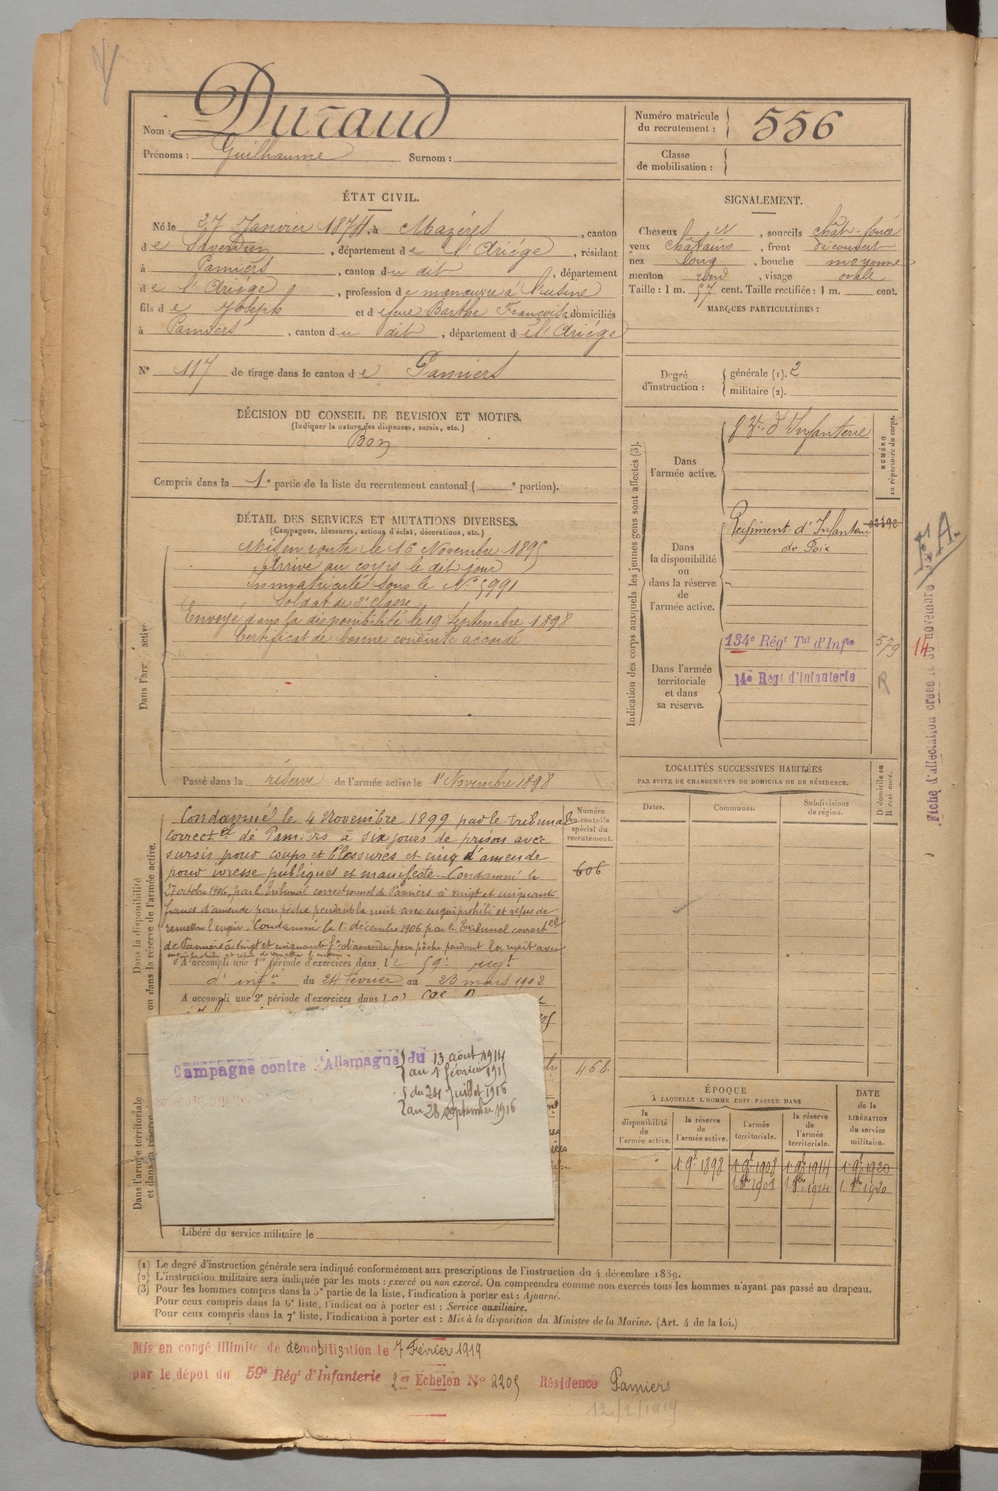 Nom : Durand
Prénoms : Guilhaume Surnom :
Numéro matricule du recrutement : 556
Classe de mobilisation :
ÉTAT CIVIL.
Né le 27 Janvier 1874, à Mazères, canton
de Saverdun, département de l'Ariége, résidant
à Pamiers, canton du dit, département
de l'Ariége, profession de manœuvre à l'usine
fils de Joseph et de feue Barthe Françoise, domiciliés
à Pamiers, canton du dit, département de l'Ariége
N° 117 de tirage dans le canton de Pamiers
DÉCISION DU CONSEIL DE REVISION ET MOTIFS.
(Indiquer la nature des dispenses, sursis, etc.)
Bon
Compris dans la 1e partie de la liste du recrutement cantonal ( e portion).
SIGNALEMENT.
Cheveux N, sourcils chât. foncé
yeux châtains, front découvert
nez long, bouche moyenne
menton rond, visage ovale
Taille : 1 m. 57 cent. Taille rectifiée : 1 m. cent.
MARQUES PARTICULIÈRES :
Degré d'instruction : générale (1). 2
militaire (2).
DÉTAIL DES SERVICES ET MUTATIONS DIVERSES.
(Campagnes, blessures, actions d'éclat, décorations, etc.)
Dans l'armée active
Mis en route le 16 Novembre 1895
Arrivé au corps le dit jour
Immatriculé sous le N° 5991
Soldat de 2e classe
Envoyé dans la disponibilité le 19 Septembre 1898
Certificat de bonne conduite accordé
Passé dans la réserve de l'armée active le 1er Novembre 1898
Indication des corps auxquels les jeunes gens sont affectés (3).
NUMÉRO au répertoire du corps.
Dans l'armée active.
d'Infanterie
Dans la disponibilité ou dans la réserve de l'armée active.
Régiment d'Infanterie
de Foix
Dans l'armée territoriale et dans sa réserve.
134e Régt Tal d'Infie 579
14e Regt d'Infanterie R
Fiche d'affectation créée le 30 novembre 14
LOCALITÉS SUCCESSIVES HABITÉES
PAR SUITE DE CHANGEMENTS DE DOMICILE OU DE RÉSIDENCE.
Dates. Communes. Subdivisions de région. D domicile ou R résidence.
Dans la disponibilité ou dans la réserve de l'armée active.
Numéro du contrôle spécial du recrutement.
606
Condamné le 4 Novembre 1899 par le tribunal
correctel de Pamiers à six jours de prison avec
sursis pour coups et blessures et cinq f d'amende
pour ivresse publique et manifeste. Condamné le
27 octobre 1906, par le tribunal correctionnel de Pamiers à vingt et cinquante
francs d'amende pour pêche pendant la nuit avec engin prohibé et refus de
remettre l'engin. Condamné le 1er décembre 1906 par le Tribunal correctel
de Pamiers à vingt et cinquante fs d'amende pour pêche pendant la nuit avec
engin prohibé et refus de remettre l'engin
A accompli une 1re période d'exercices dans le 59e régt
d'infie du 24 février au 23 mars 1902
A accompli une 2e période d'exercices dans le
Dans l'armée territoriale et dans sa réserve.
468
Campagne contre l'Allemagne du 13 août 1914
au 1 février 1915
du 24 Juillet 1916
au 28 septembre 1916
Libéré du service militaire le
ÉPOQUE
À LAQUELLE L'HOMME DOIT PASSER DANS
la disponibilité de l'armée active. la réserve de l'armée active. l'armée territoriale. la réserve de l'armée territoriale.
DATE de la LIBÉRATION du service militaire.
1 9bre 1898 1 9bre 1908 1 9bre 1914 1 9bre 1920
1 8bre 1908 1 8bre 1914 1 8bre 1920
(1) Le degré d'instruction générale sera indiqué conformément aux prescriptions de l'instruction du 4 décembre 1889.
(2) L'instruction militaire sera indiquée par les mots : exercé ou non exercé. On comprendra comme non exercés tous les hommes n'ayant pas passé au drapeau.
(3) Pour les hommes compris dans la 5e partie de la liste, l'indication à porter est : Ajourné.
Pour ceux compris dans la 6e liste, l'indication à porter est : Service auxiliaire.
Pour ceux compris dans la 7e liste, l'indication à porter est : Mis à la disposition du Ministre de la Marine. (Art. 4 de la loi.)
Mis en congé illimité de démobilisation le 7 Février 1919
par le dépôt du 59e Régt d'Infanterie 2e Echelon N° 2205 Résidence Pamiers
12/2/1919